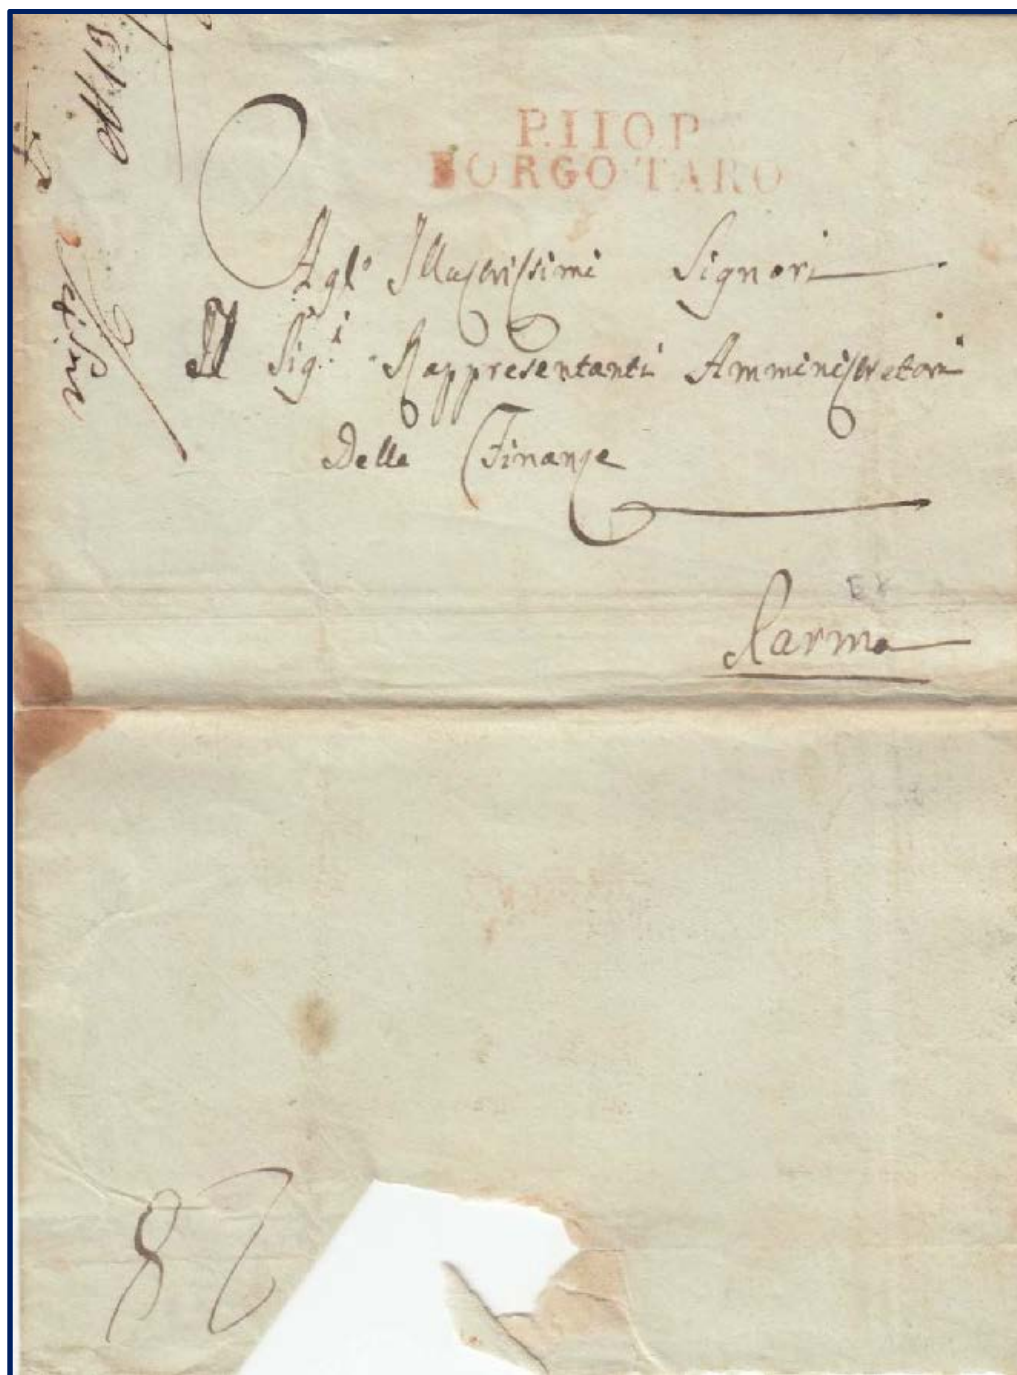 P.110.P
BORGO TARO
Agl.' Illustrissimi Signori
Sig.ri Rappresentanti Amministratori
Delle Finanze
Parma